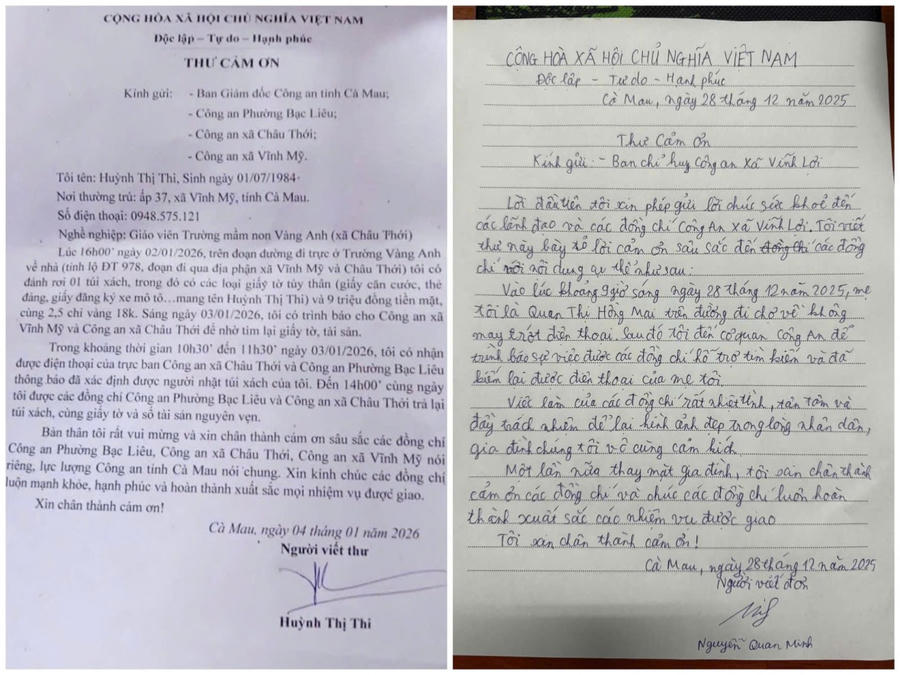 CỘNG HÒA XÃ HỘI CHỦ NGHĨA VIỆT NAM
Độc lập – Tự do – Hạnh phúc
THƯ CẢM ƠN
Kính gửi: - Ban Giám đốc Công an tỉnh Cà Mau;
- Công an Phường Bạc Liêu;
- Công an xã Châu Thới;
- Công an xã Vĩnh Mỹ.
Tôi tên: Huỳnh Thị Thi, Sinh ngày 01/07/1984
Nơi thường trú: ấp 37, xã Vĩnh Mỹ, tỉnh Cà Mau.
Số điện thoại: 0948.575.121
Nghề nghiệp: Giáo viên Trường mầm non Vàng Anh (xã Châu Thới)
Lúc 16h00' ngày 02/01/2026, trên đoạn đường đi trực ở Trường Vàng Anh
về nhà (tỉnh lộ ĐT 978, đoạn đi qua địa phận xã Vĩnh Mỹ và Châu Thới) tôi có
đánh rơi 01 túi xách, trong đó có các loại giấy tờ tùy thân (giấy căn cước, thẻ
đảng, giấy đăng ký xe mô tô…mang tên Huỳnh Thị Thi) và 9 triệu đồng tiền mặt,
cùng 2,5 chỉ vàng 18k. Sáng ngày 03/01/2026, tôi có trình báo cho Công an xã
Vĩnh Mỹ và Công an xã Châu Thới để nhờ tìm lại giấy tờ, tài sản.
Trong khoảng thời gian 10h30' đến 11h30' ngày 03/01/2026, tôi có nhận
được điện thoại của trực ban Công an xã Châu Thới và Công an Phường Bạc Liêu
thông báo đã xác định được người nhặt túi xách của tôi. Đến 14h00' cùng ngày
tôi được các đồng chí Công an Phường Bạc Liêu và Công an xã Châu Thới trả lại
túi xách, cùng giấy tờ và số tài sản nguyên vẹn.
Bản thân tôi rất vui mừng và xin chân thành cảm ơn sâu sắc các đồng chí
Công an Phường Bạc Liêu, Công an xã Châu Thới, Công an xã Vĩnh Mỹ nói
riêng, lực lượng Công an tỉnh Cà Mau nói chung. Xin kính chúc các đồng chí
luôn mạnh khỏe, hạnh phúc và hoàn thành xuất sắc mọi nhiệm vụ được giao.
Xin chân thành cảm ơn!
Cà Mau, ngày 04 tháng 01 năm 2026
Người viết thư
Huỳnh Thị Thi
CỘNG HÒA XÃ HỘI CHỦ NGHĨA VIỆT NAM
Độc lập - Tự do - Hạnh phúc
Cà Mau, ngày 28 tháng 12 năm 2025
Thư Cảm ơn
Kính gửi: - Ban chỉ huy Công an Xã Vĩnh Lợi
Lời đầu tiên tôi xin phép gửi lời chúc sức khoẻ đến
các lãnh đạo và các đồng chí Công An Xã Vĩnh Lợi. Tôi viết
thư này bày tỏ lời cảm ơn sâu sắc đến các đồng
chí với nội dung cụ thể như sau:
Vào lúc khoảng 9 giờ sáng ngày 28 tháng 12 năm 2025, mẹ
tôi là Quan Thị Hồng Mai trên đường đi chợ về không
may rớt điện thoại. Sau đó tôi đến cơ quan Công An để
trình báo sự việc được các đồng chí hỗ trợ tìm kiếm và đã
kiếm lại được điện thoại của mẹ tôi.
Việc làm của các đồng chí rất nhiệt tình, tận tâm và
đầy trách nhiệm để lại hình ảnh đẹp trong lòng nhân dân,
gia đình chúng tôi vô cùng cảm kích.
Một lần nữa thay mặt gia đình, tôi xin chân thành
cảm ơn các đồng chí và chúc các đồng chí luôn hoàn
thành xuất sắc các nhiệm vụ được giao
Tôi xin chân thành cảm ơn!
Cà Mau, ngày 28 tháng 12 năm 2025
Người viết đơn
Nguyễn Quan Minh